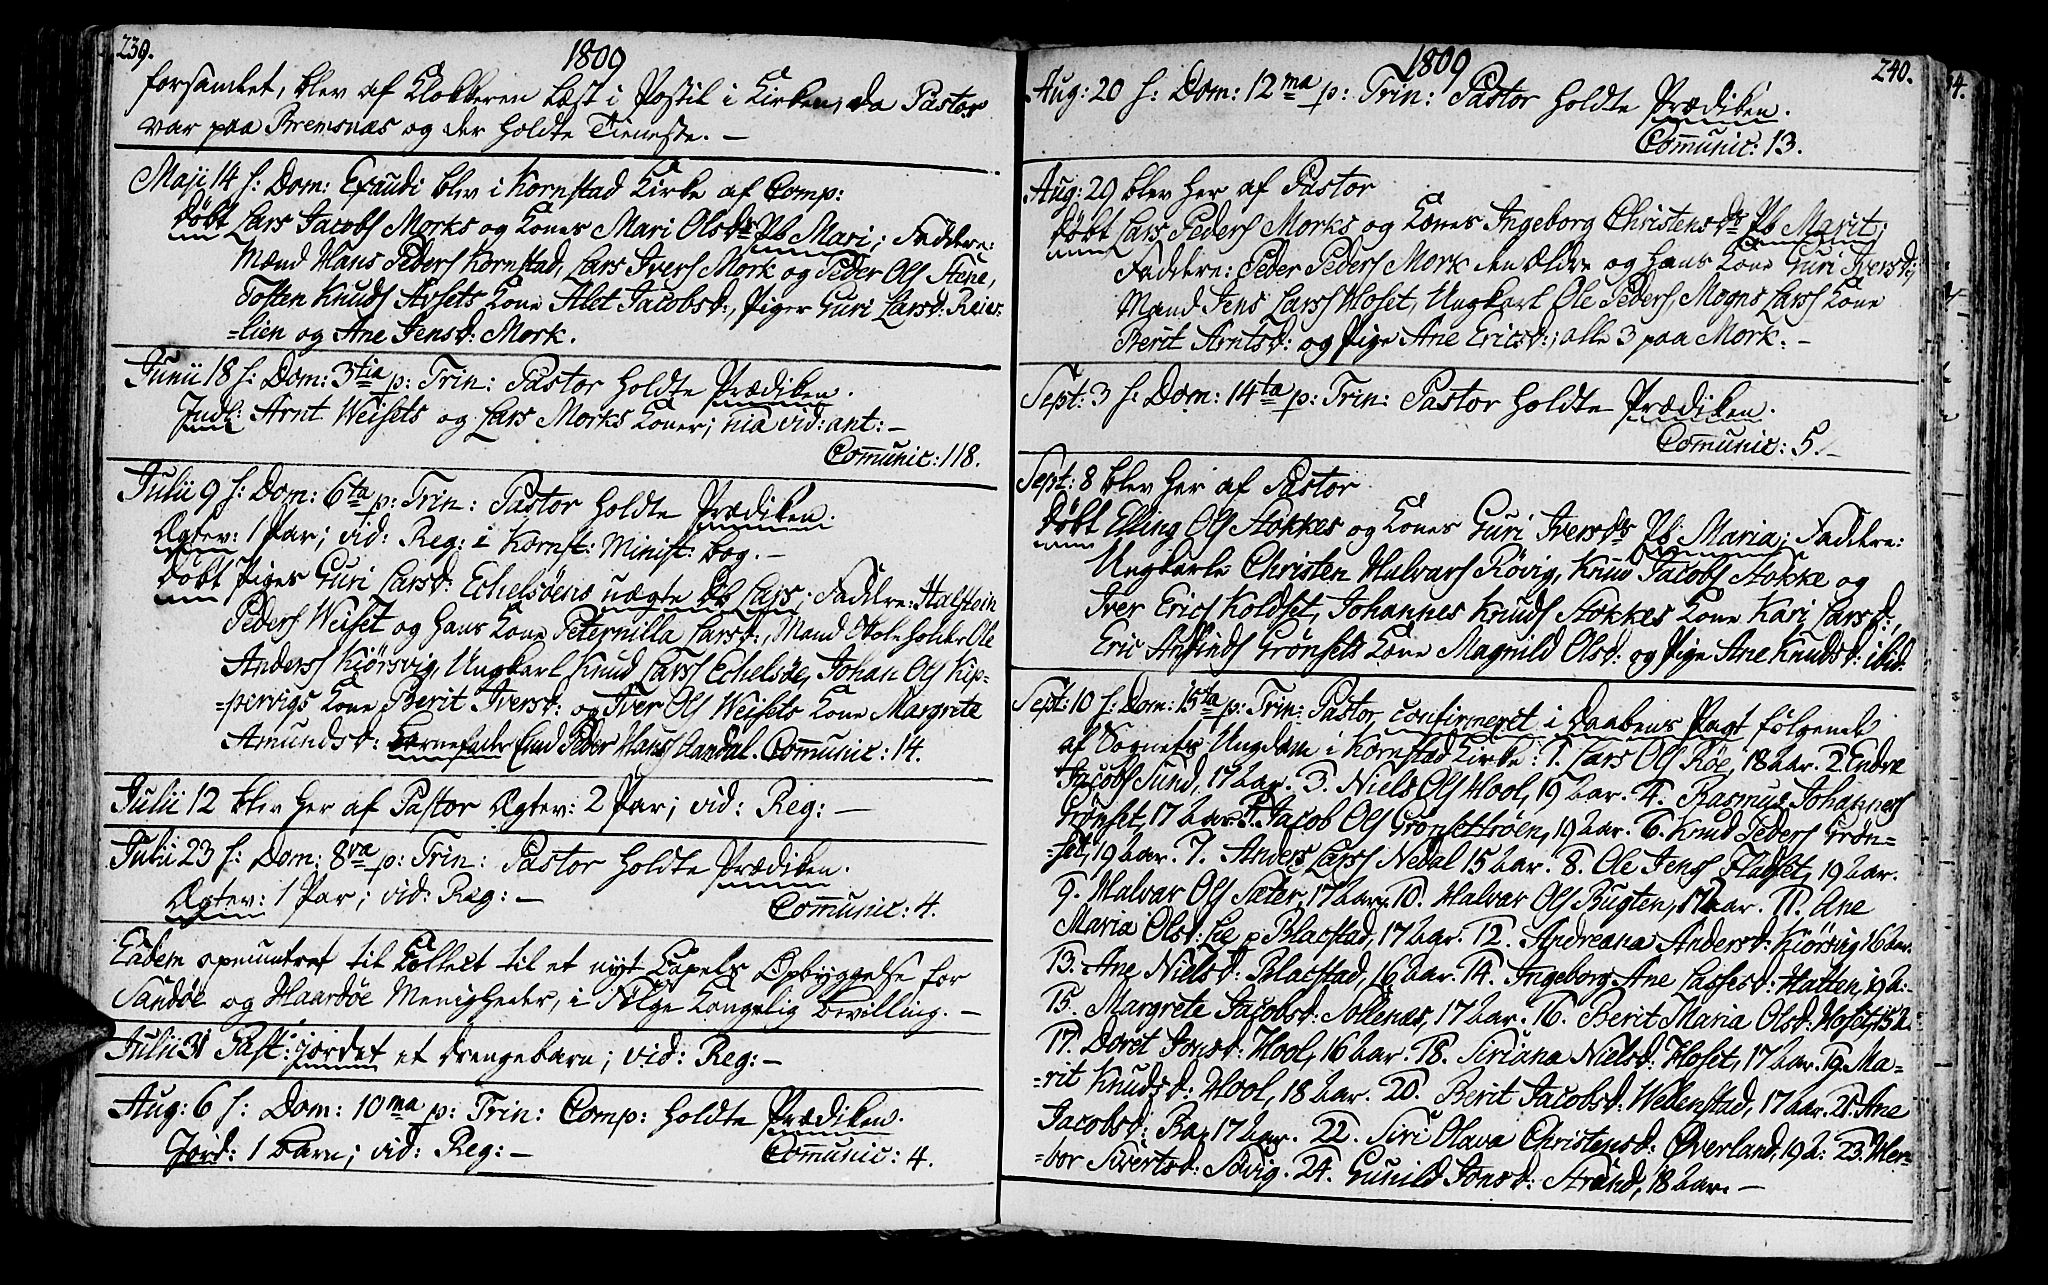 239.
1809
forsamlet, blev af Klokkeren læst i Postil i Kirken, da Pastor
var paa Bremsnæs og der holdte Tieneste. —
Maji 14 h: Dom: Exaudi blev i Kornstad Kirke af Comp:
døbt Lars Jacobs Morks og Kones Mari Olsdr Pb Mari; Faddere:
Mænd Hans Peders Kornstad, Lars Ivers Mork og Peder Ols Stene,
Tosten Knuds Avsets Kone Alet Jacobsd:, Piger Guri Larsd: Reis-
=lien og Ane Jensd: Mork.
Junii 18 h: Dom: 3tia p: Trin: Pastor holdte Prædiken.
Indl: Arnt Weisets og Lars Morks Koner; via vid: ant: —
Comunic: 118.
Julii 9 h: Dom: 6ta p: Trin: Pastor holdte Prædiken.
Ægtev: 1 Par; vid: Reg: i Kornst: Minist: bog. —
døbt Piges Guri Larsd: Echelsöens uægte Db Lars; Faddere: Halstein
Peders Weiset og hans Kone Peternilla Larsd:, Mand Ole
Anders Kiörsvig, Ungkarl Knud Lars Echelsöe, Johan Ols Kip=
=pervigs Kone Berit Iversd: og Iver Ols Weisets Kone Margrete
Amundsd: Barnefader Peder Hans Comunic: 14.
Julii 12 blev her af Pastor Ægtev: 2 Par; vid: Reg: —
Julii 23 h: Dom: 8va p: Trin: Pastor holdte Prædiken.
Ægtev: 1 Par; vid: Reg: —
Comunic: 4.
Eadem opmuntret til Collect til et nyt Capels Opbyggelse for
Sandöe og Haardöe Menigheder, i Følge Kongelig bevilling. —
Julii 31 Past: jordet et drengebarn; vid: Reg: —
Aug: 6 h: Dom: 10ma p: Trin: Comp: holdte Prædiken.
Jord: 1 barn; vid: Reg: —
Comunic: 4.
1809
240.
Aug: 20 h: Dom: 12ma p: Trin: Pastor holdte Prædiken.
Comunic: 13.
Aug: 29 blev her af Pastor
døbt Lars Peders Morks og Kones Ingeborg Christensdr Pb Marit;
Faddere: Peder Peders Mork den ældre og hans Kone Guri Iversd:,
Mand Jens Lars Hoset, Ungkarl Ole Peders, Mogns Lars Kone
Berit Arntsd: og Pige Ane Ericsd:, alle 3 paa Mork. —
Sept: 3 h: Dom: 14ta p: Trin: Pastor holdte Prædiken.
Comunic: 5. —
Sept: 8 blev her af Pastor
døbt Elling Ols Stokkes og Kones Guri Iversdr Pb Maria; Faddere:
Ungkarle Christen Halvars Røvig, Knud Jacobs Stokke og
Iver Erics Koldset, Johannes Knuds Stokkes Kone Kari Larsd:,
Eric Grönsets Kone Magnild Olsd: og Pige Ane Knudsd: ibid:
Sept: 10 h: Dom: 15ta p: Trin: Pastor confirmeret i Daabens Pagt følgende
af Sognets Ungdom i Kornstad Kirke: 1. Lars Ols Röe, 18 aar. 2. Endre
Jacobs Sund, 17 aar. 3. Niels Ols Hool, 19 aar. 4. Rasmus Johannes
Grönset, 17 aar. 5. Jacob Ols Grönsettröen, 19 aar. 6. Knud Peders Grön=
=set, 19 aar. 7. Anders Lars Nedal 15 aar. 8. Ole Jens Fladset, 19 aar.
9. Halvar Ols Sæter, 17 aar. 10. Halvor Ols Bugten, 17 aar. 11. Ane
Maria Olsd: Lie p Blacstad, 17 aar. 12. Andreana Andersd: Kiörsvig 16 aar.
13. Ane Nielsd: Blacstad, 16 aar. 14. Ingeborg Ane Lassesd: Hatten, 19 a:
15. Margrete Jacobsd: Solienæs, 17 aar. 16. Berit Maria Olsd: Hoset, 15 a.
17. Doret Jonsd: Hool, 16 aar. 18. Siriana Nielsd: Hoset, 17 aar. 19. Ma=
=rit Knudsd: Hool, 18 aar. 20. Berit Jacobsd: Webenstad, 17 aar. 21. Ane
Jacobsd: Bae, 17 aar. 22. Siri Olava Christensd: Øverland, 19 a: 23. Her=
=bor Sivertsd: Søvig. 24. Gunild Jonsd: Strand, 18 aar. —